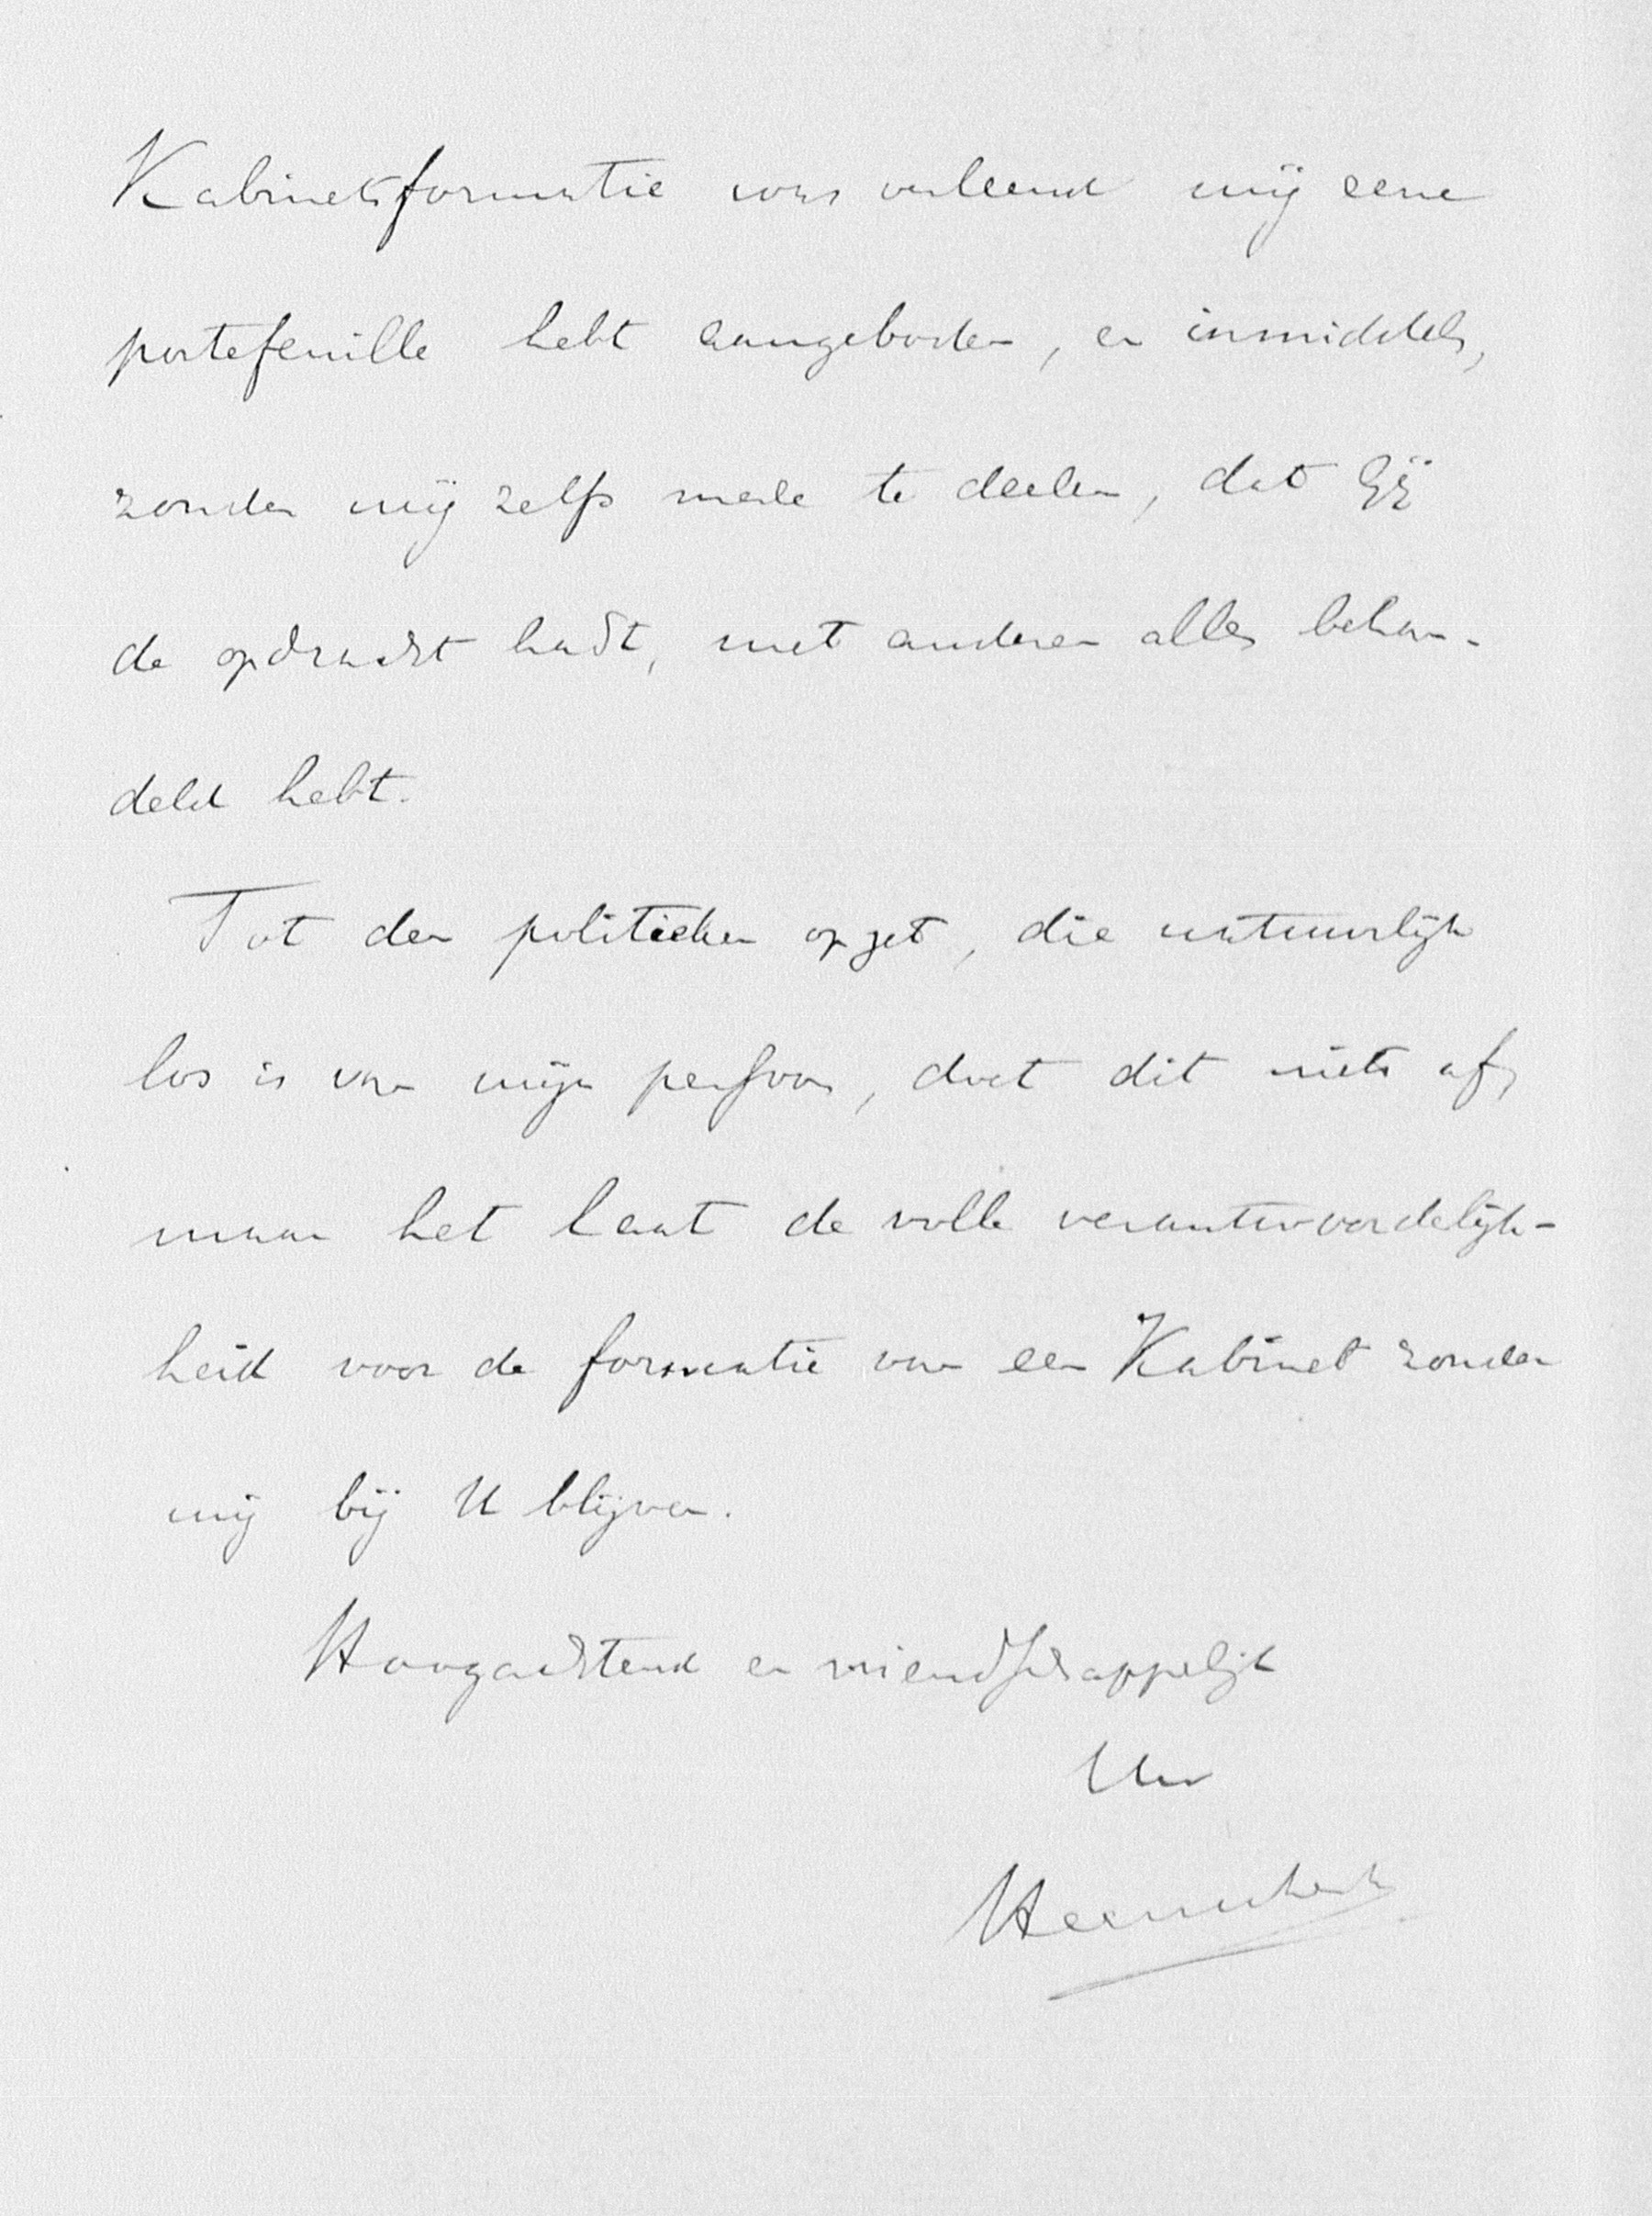 Kabinetsformatie was verleend mij eene
portefeuille hebt aangeboden, en inmiddels,
zonder mij zelfs mede te deelen, dat Gij
de opdracht hadt, met anderen alles behan-
deld hebt.
Tot den politieken opzet, die natuurlijk
los is van mijn persoon, doet dit niets af,
maar het laat de volle verantwoordelijk-
heid voor de formatie van een Kabinet zonder
mij bij U blijven.
Hoogachtend en vriendschappelijk
Uw
Heemskerk